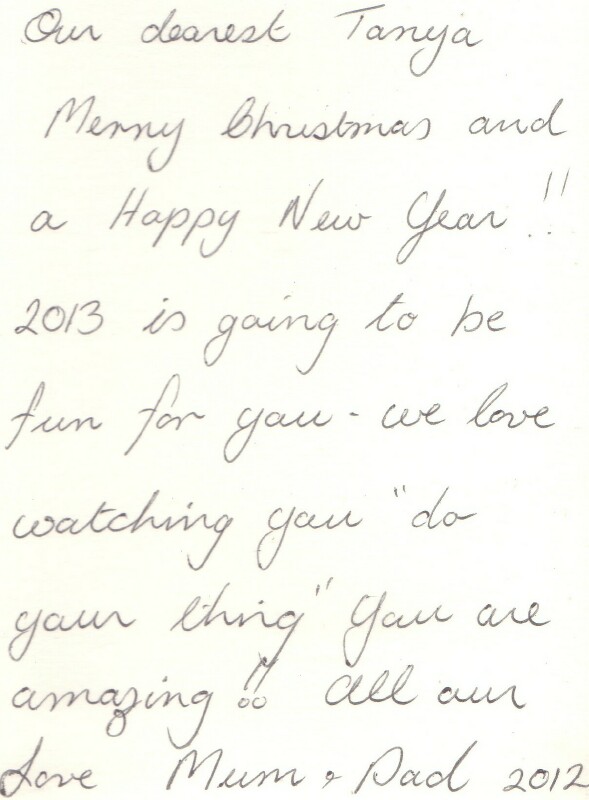 Our dearest Tanya
Merry Christmas and
a Happy New Year!!
2013 is going to be
fun for you - we love
watching you "do
your thing" You are
amazing!! All our
Love Mum & Dad 2012